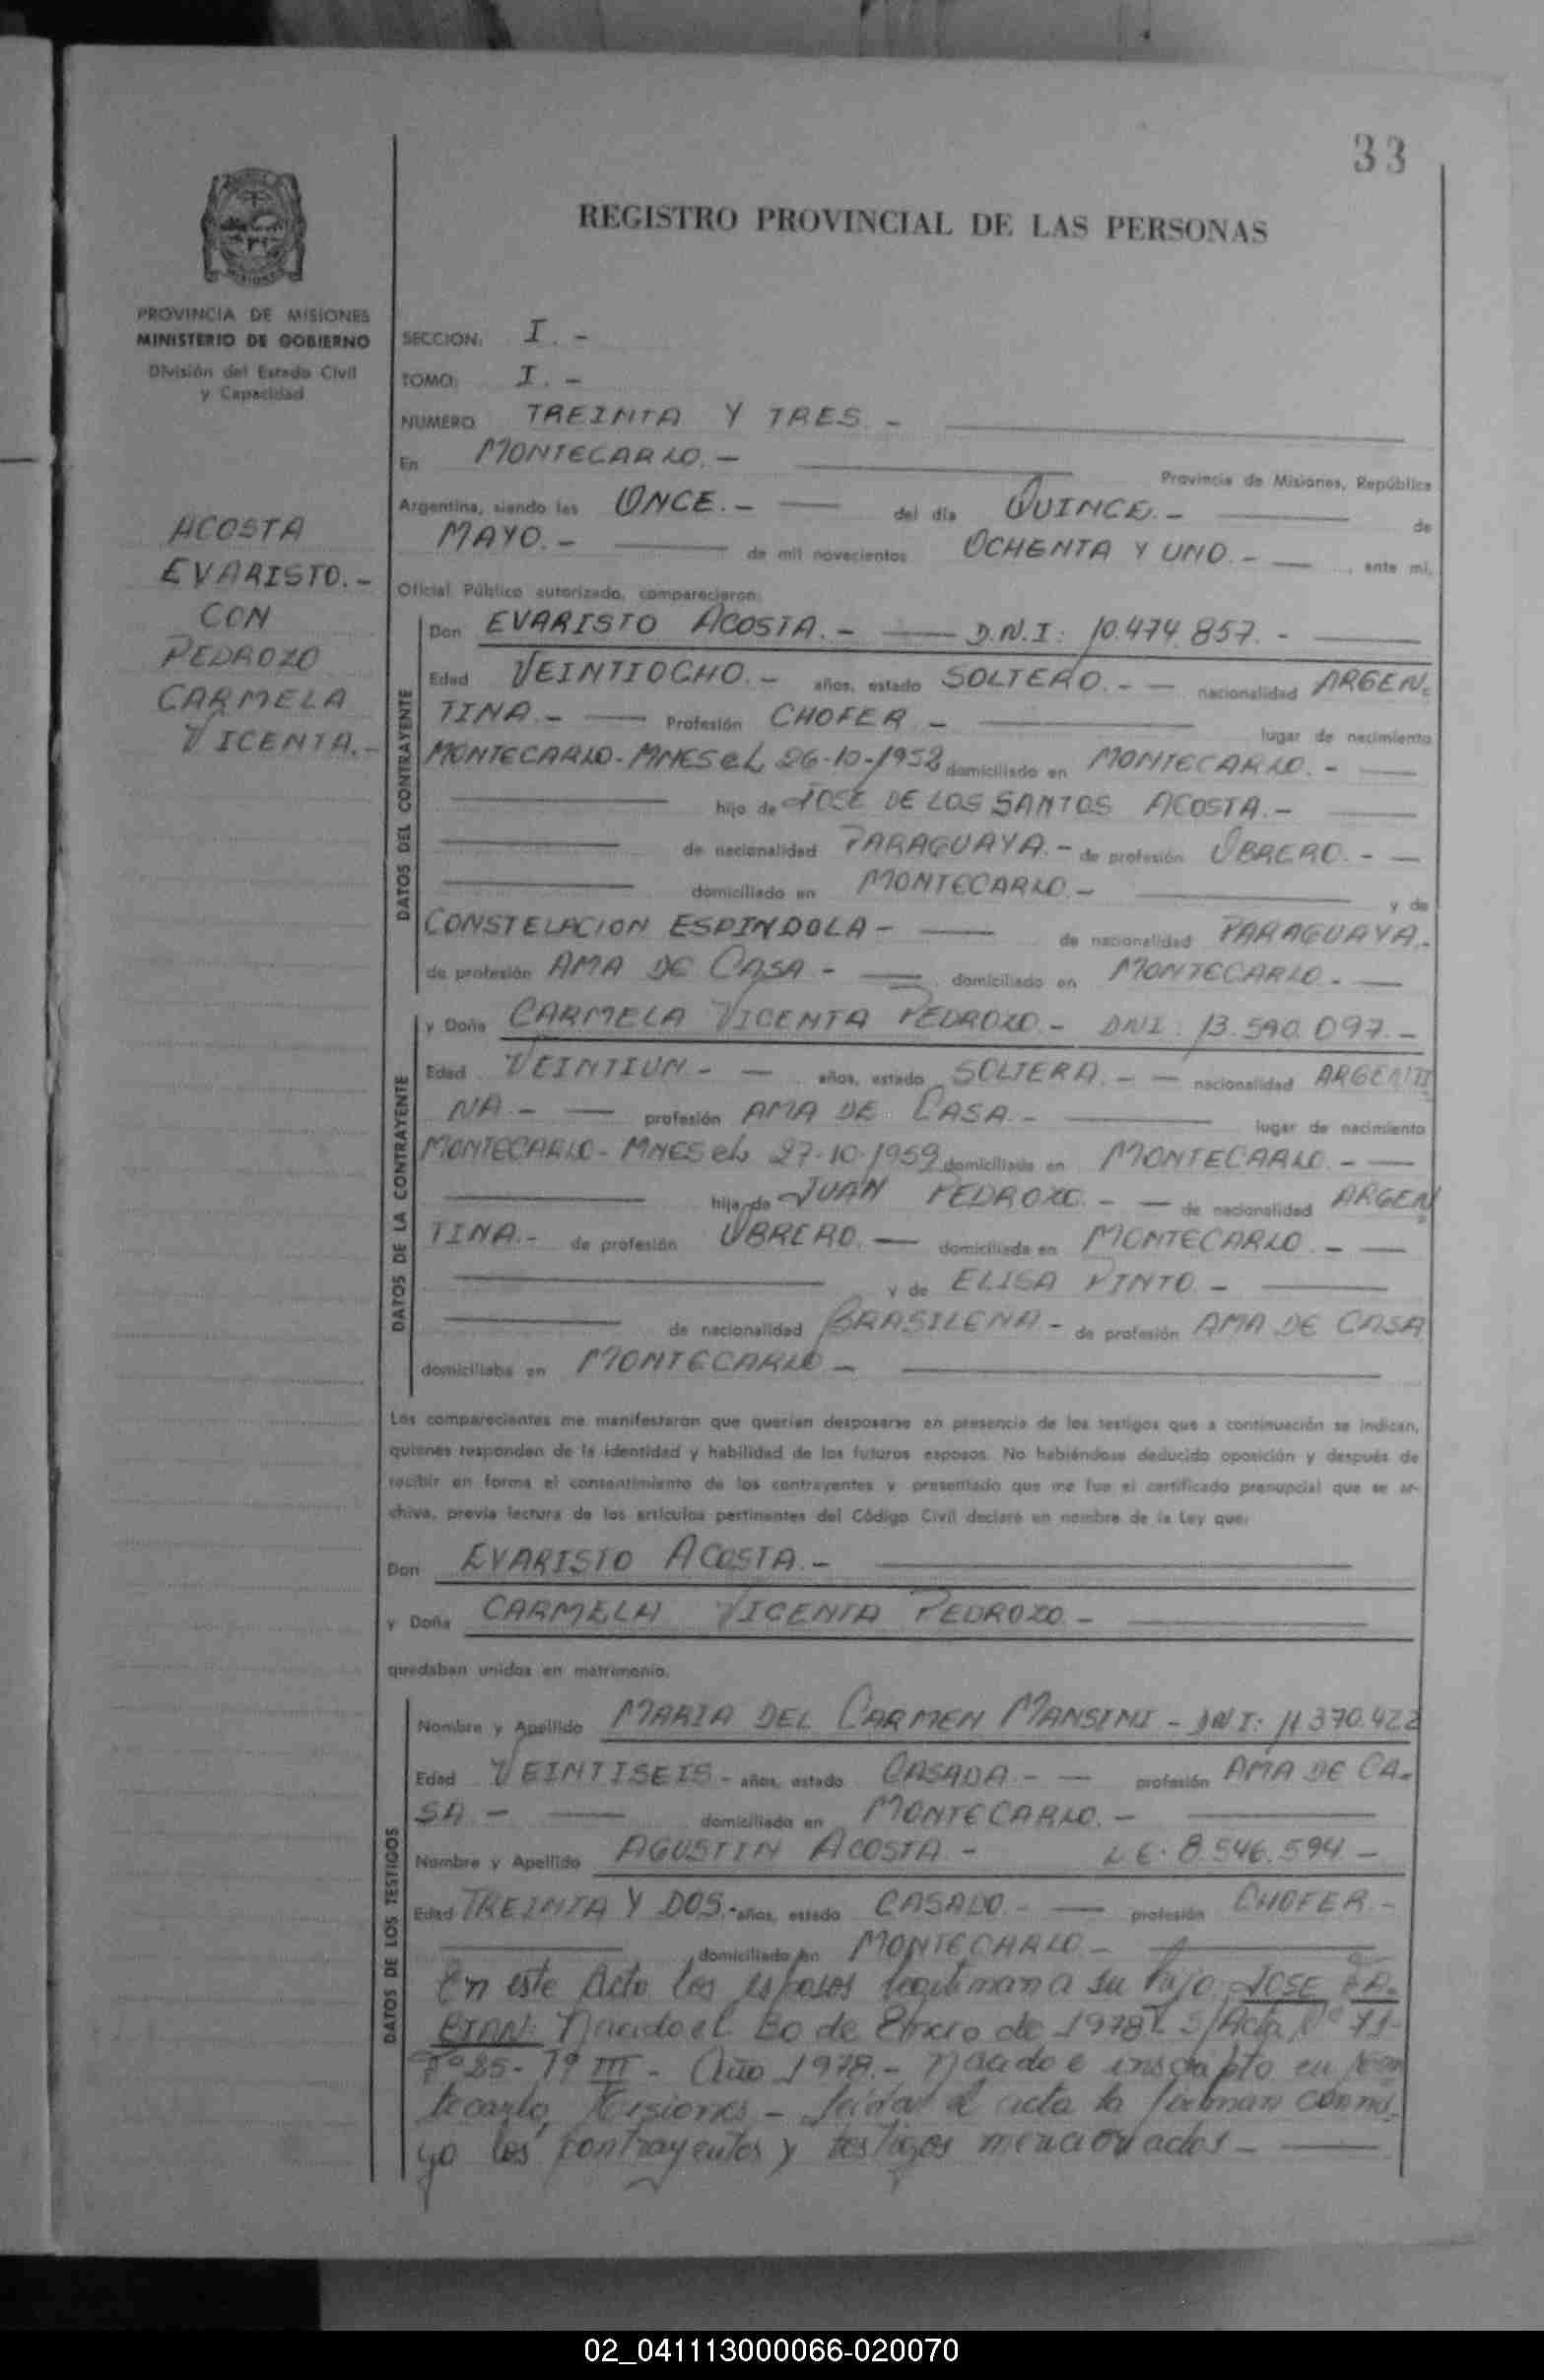 33
REGISTRO PROVINCIAL DE LAS PERSONAS
PROVINCIA DE MISIONES
MINISTERIO DE GOBIERNO
División del Estado Civil
y Capacidad
ACOSTA
EVARISTO.-
CON
PEDROZO
CARMELA
VICENTA.-
SECCION: I.-
TOMO: I.-
NUMERO TREINTA Y TRES.-
En MONTECARLO.- Provincia de Misiones, República
Argentina, siendo las ONCE.- del día QUINCE.- de
MAYO.- de mil novecientos OCHENTA Y UNO.- ante mí,
Oficial Público autorizado, comparecieron:
DATOS DEL CONTRAYENTE
Don EVARISTO ACOSTA.- D.N.I: 10.474.857.-
Edad VEINTIOCHO.- años, estado SOLTERO.- - nacionalidad ARGEN-
TINA.- Profesión CHOFER.- lugar de nacimiento
MONTECARLO-MNES el 26-10-1952 domiciliado en MONTECARLO.-
hijo de JOSE DE LOS SANTOS ACOSTA.-
de nacionalidad PARAGUAYA.- de profesión OBRERO.-
domiciliado en MONTECARLO.- y de
CONSTELACION ESPINDOLA- de nacionalidad PARAGUAYA.-
de profesión AMA DE CASA- domiciliado en MONTECARLO.-
DATOS DE LA CONTRAYENTE
y Doña CARMELA VICENTA PEDROZO- DNI: 13.590.097.-
Edad VEINTIUN.- años, estado SOLTERA.- - nacionalidad ARGENTI
NA.- profesión AMA DE CASA.- lugar de nacimiento
MONTECARLO-MNES el 27-10-1959 domiciliada en MONTECARLO.-
hija de JUAN PEDROZO.- de nacionalidad ARGEN
TINA.- de profesión OBRERO.- domiciliada en MONTECARLO.-
y de ELISA PINTO.-
de nacionalidad BRASILENA- de profesión AMA DE CASA
domiciliaba en MONTECARLO-
Los comparecientes me manifestaron que querían desposarse en presencia de los testigos que a continuación se indican,
quienes responden de la identidad y habilidad de los futuros esposos. No habiéndose deducido oposición y después de
recibir en forma el consentimiento de los contrayentes y presentado que me fue el certificado prenupcial que se ar-
chiva, previa lectura de los artículos pertinentes del Código Civil declaré en nombre de la Ley que:
Don EVARISTO ACOSTA.-
y Doña CARMELA VICENTA PEDROZO-
quedaban unidos en matrimonio.
DATOS DE LOS TESTIGOS
Nombre y Apellido MARIA DEL CARMEN MANSINI - DNI: 11.370.422
Edad VEINTISEIS- años, estado CASADA.- - profesión AMA DE CA-
SA.- domiciliada en MONTECARLO.-
Nombre y Apellido AGUSTIN ACOSTA- LE. 8.546.594-
Edad TREINTA Y DOS.- años, estado CASADO.- profesión CHOFER.-
domiciliado en MONTECARLO-
En este Acto los esposos legitiman a su hijo: JOSE FA-
BIAN: Nacido el 30 de Enero de 1978 S/Acta Nº 71-
Fº 25- Tº III- Año 1978.- Nacido e inscripto en Mon
tecarlo, Misiones- Leída el acta la firman conmi
go los contrayentes y testigos mencionados-
02_041113000066-020070